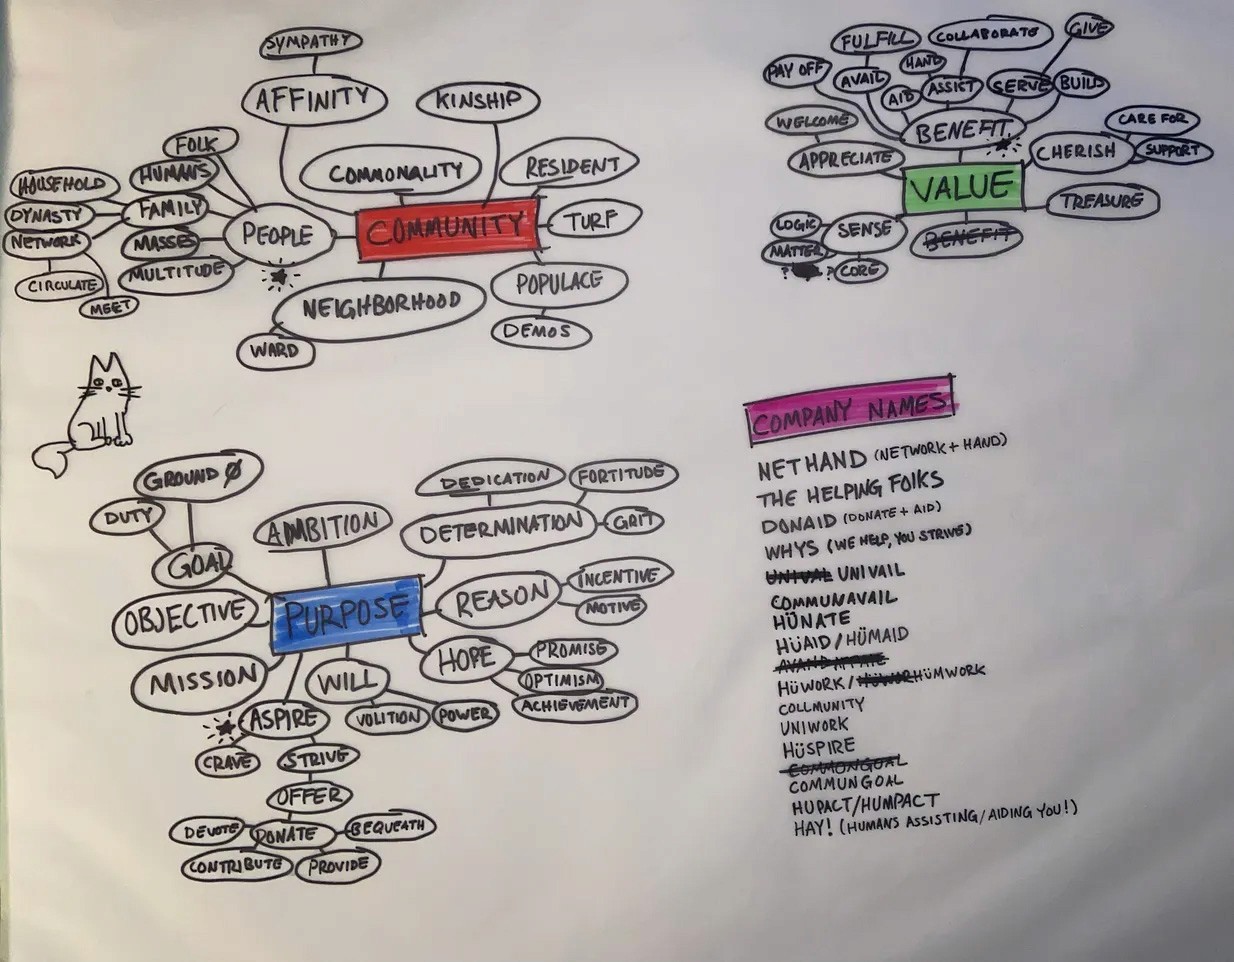 SYMPATHY
AFFINITY
KINSHIP
FOLK
COMMONALITY
RESIDENT
HUMANS
HOUSEHOLD
FAMILY
DYNASTY
NETWORK
MASSES
PEOPLE
COMMUNITY
TURF
MULTITUDE
CIRCULATE
MEET
NEIGHBORHOOD
POPULACE
WARD
DEMOS
GIVE
FULFILL
COLLABORATE
PAY OFF
AVAIL
HAND
AID
ASSIST
SERVE
BUILD
WELCOME
BENEFIT
CARE FOR
APPRECIATE
CHERISH
SUPPORT
VALUE
TREASURE
LOGIC
SENSE
BENEFIT
MATTER
? ?
CORE
GROUND Ø
DUTY
AMBITION
DEDICATION
FORTITUDE
DETERMINATION
GRIT
GOAL
OBJECTIVE
PURPOSE
REASON
INCENTIVE
MOTIVE
MISSION
WILL
HOPE
PROMISE
OPTIMISM
ACHIEVEMENT
ASPIRE
VOLITION
POWER
CRAVE
STRIVE
OFFER
DEVOTE
DONATE
BEQUEATH
CONTRIBUTE
PROVIDE
COMPANY NAMES
NETHAND (NETWORK + HAND)
THE HELPING FOLKS
DONAID (DONATE + AID)
WHYS (WE HELP, YOU STRIVE)
UNIVAL UNIVAIL
COMMUNAVAIL
HÜNATE
HÜAID/HÜMAID
HÜWORK/HÜWORHÜMWORK
COLLMUNITY
UNIWORK
HÜSPIRE
COMMONGOAL
COMMUNGOAL
HUPACT/HUMPACT
HAY! (HUMANS ASSISTING/AIDING YOU!)